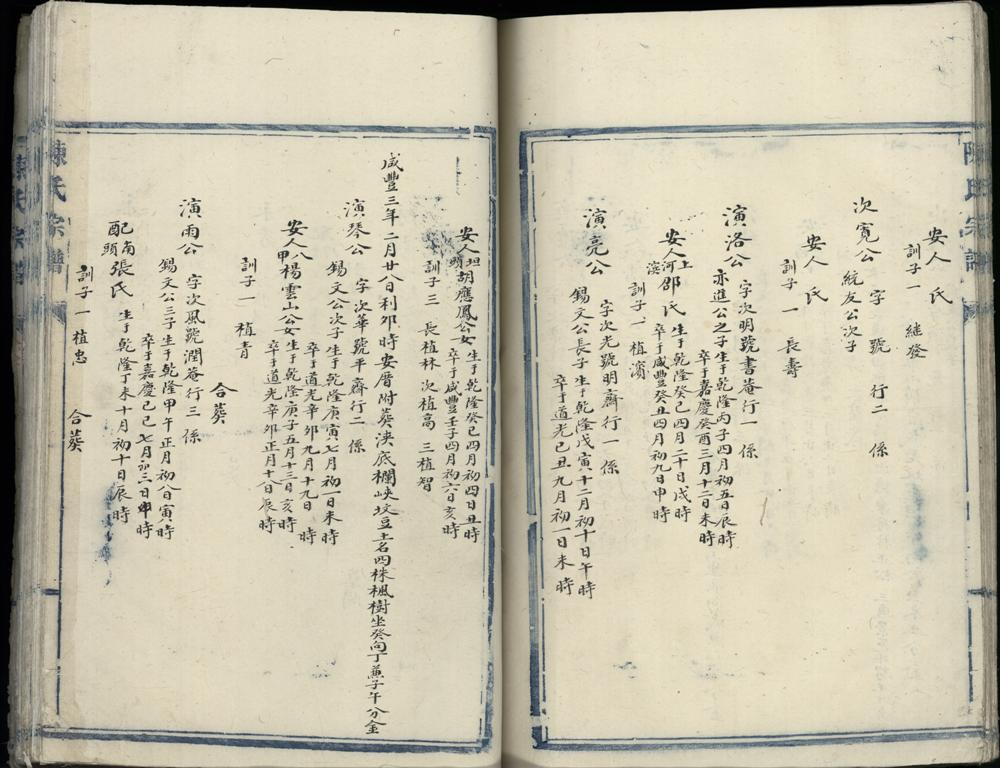 陳氏宗譜
安人　氏
訓子一　継發
次寬公　字　號　行二　係
統友公次子
安人　氏
訓子一　長壽
演洛公　字次明號書菴行一　係
亦進公之子生于乾隆丙子四月初五日辰時
卒于嘉慶癸酉三月十二日未時
安人上河濱邵氏　生于乾隆癸巳四月二十日戌時
卒于咸豐癸丑四月初九日申時
訓子一　植濱
演亮公　字次光號明齋行一　係
錫文公長子生于乾隆戊寅十二月初十日午時
卒于道光己丑九月初一日未時
安人坦頭胡應鳳公女　生于乾隆癸巳四月初四日丑時
卒于咸豐壬子四月初六日亥時
訓子三　長植林　次植高　三植智
咸豐三年二月廿八日利夘時安厝附葬浹底欄峽坟荳土名四株楓樹坐癸向丁兼子午分金
演琴公　字次華號平齋行二　係
錫文公次子生于乾隆庚寅七月初一日未時
卒于道光辛夘九月十九日　時
安人八甲楊雲山公女　生于乾隆庚子五月十三日亥時
卒于道光辛夘正月十八日辰時
訓子一　植青　合葬
演雨公　字次風號潤菴行三　係
錫文公三子生于乾隆甲午正月初八日寅時
卒于嘉慶己巳七月初二日申時
配南頭張氏　生于乾隆丁未十月初十日辰時
訓子一植忠　合葬
陳氏宗譜
陳氏宗